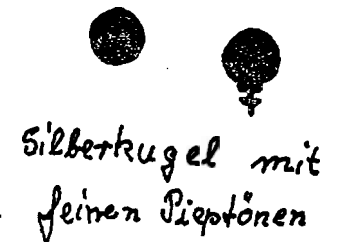 Silberkugel mit
feinen Pieptönen